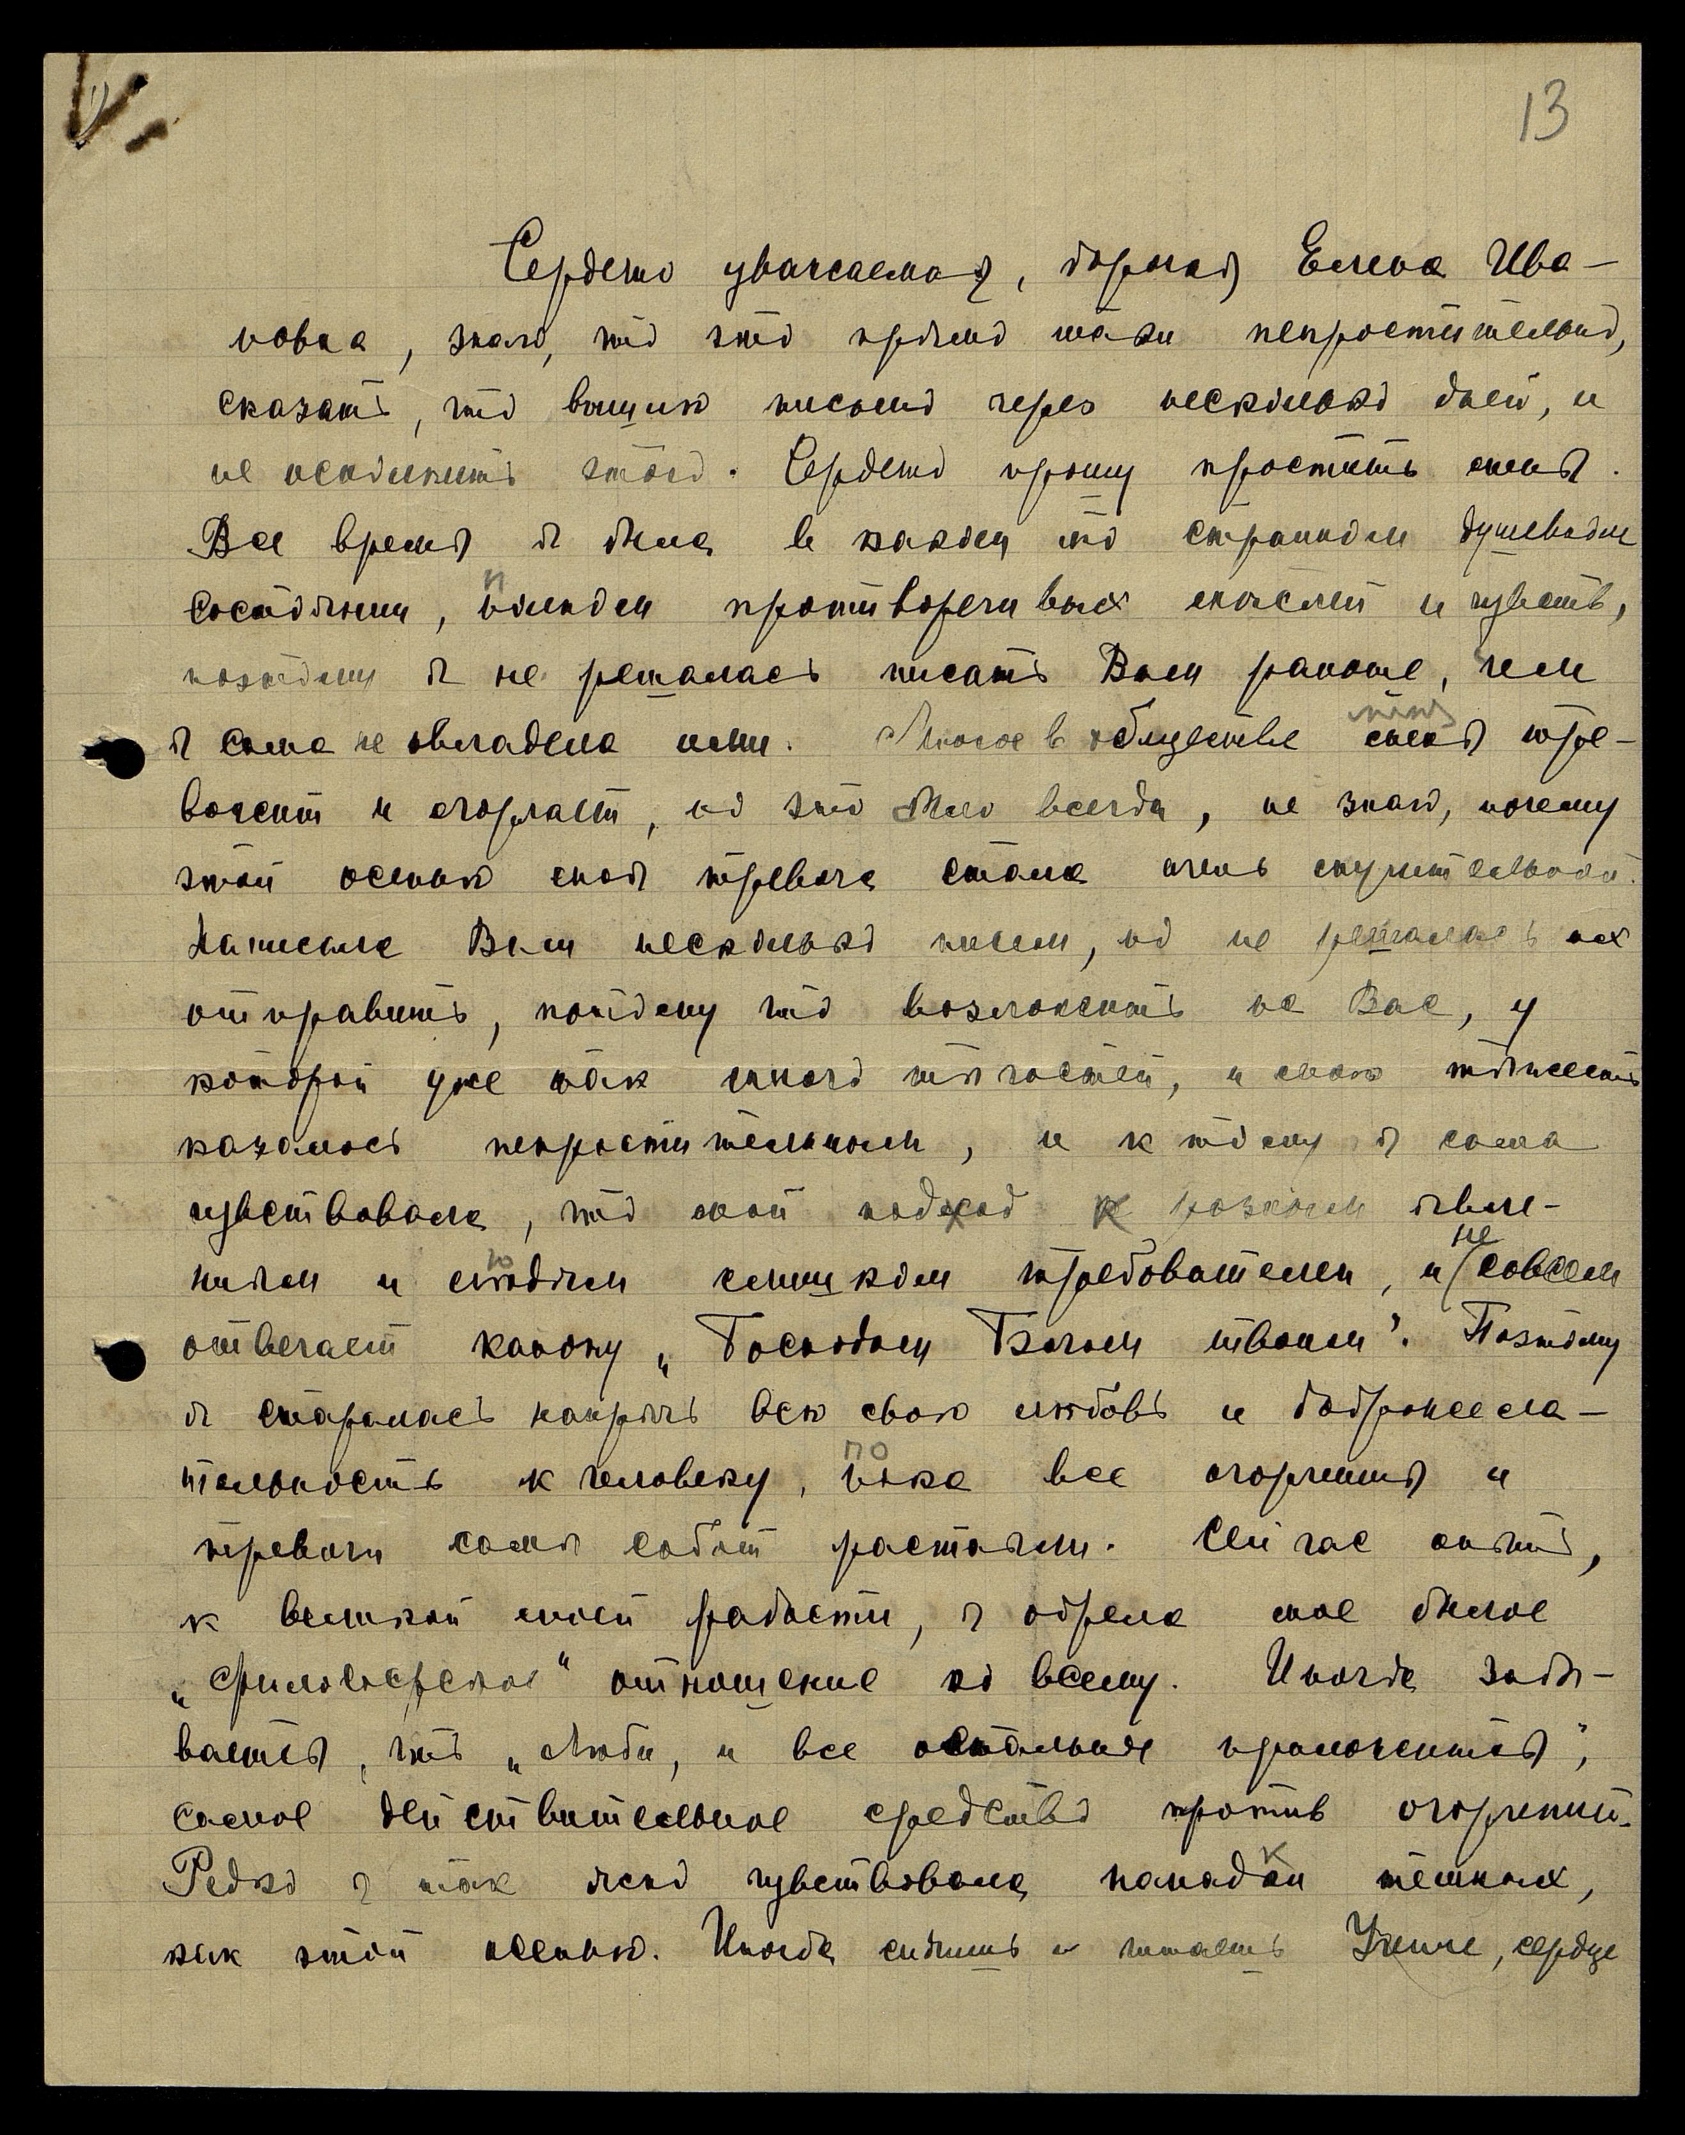 13
Сердечно уважаемая, дорогая Елена Ива-
новна, знаю, что это прямо таки непростительно,
сказать, что вышлю письмо через несколько дней, и
не исполнить этого. Сердечно прошу простить меня.
Все время я была в каком то странном душевном
состоянии, полном противоречивых мыслей и чувств,
поэтому я не решалась писать Вам раньше, чем
я сама не овладела ими. Многое в обществе меня тре-
вожит и огорчает, но это было всегда, не знаю, почему
этой осенью моя тревога стала очень мучительной.
Написала Вам несколько писем, но не решалась их
отправить, потому что возложить на Вас, у
которой уже так много тягостей, и свою тяжесть
казалось непростительным, и к тому я сама
чувствовала, что мой подход к разным явле-
ниям и людям слишком требователен, и не совсем
отвечает канону „Господом Твоим твоим". Поэтому
я старалась напрячь всю свою любовь и доброжела-
тельность к человеку, пока все огорчения и
тревоги сами собой растаяли. Сейчас опять,
к великой моей радости, я обрела мое былое
„философское" отношение ко всему. Иногда забы-
вается, что „Люби, и все остальное приложится",
самое действительное средство против огорчений.
Редко я так ясно чувствовала нападки темных,
как этой осенью. Иногда сидишь и читаешь Учение, сердце